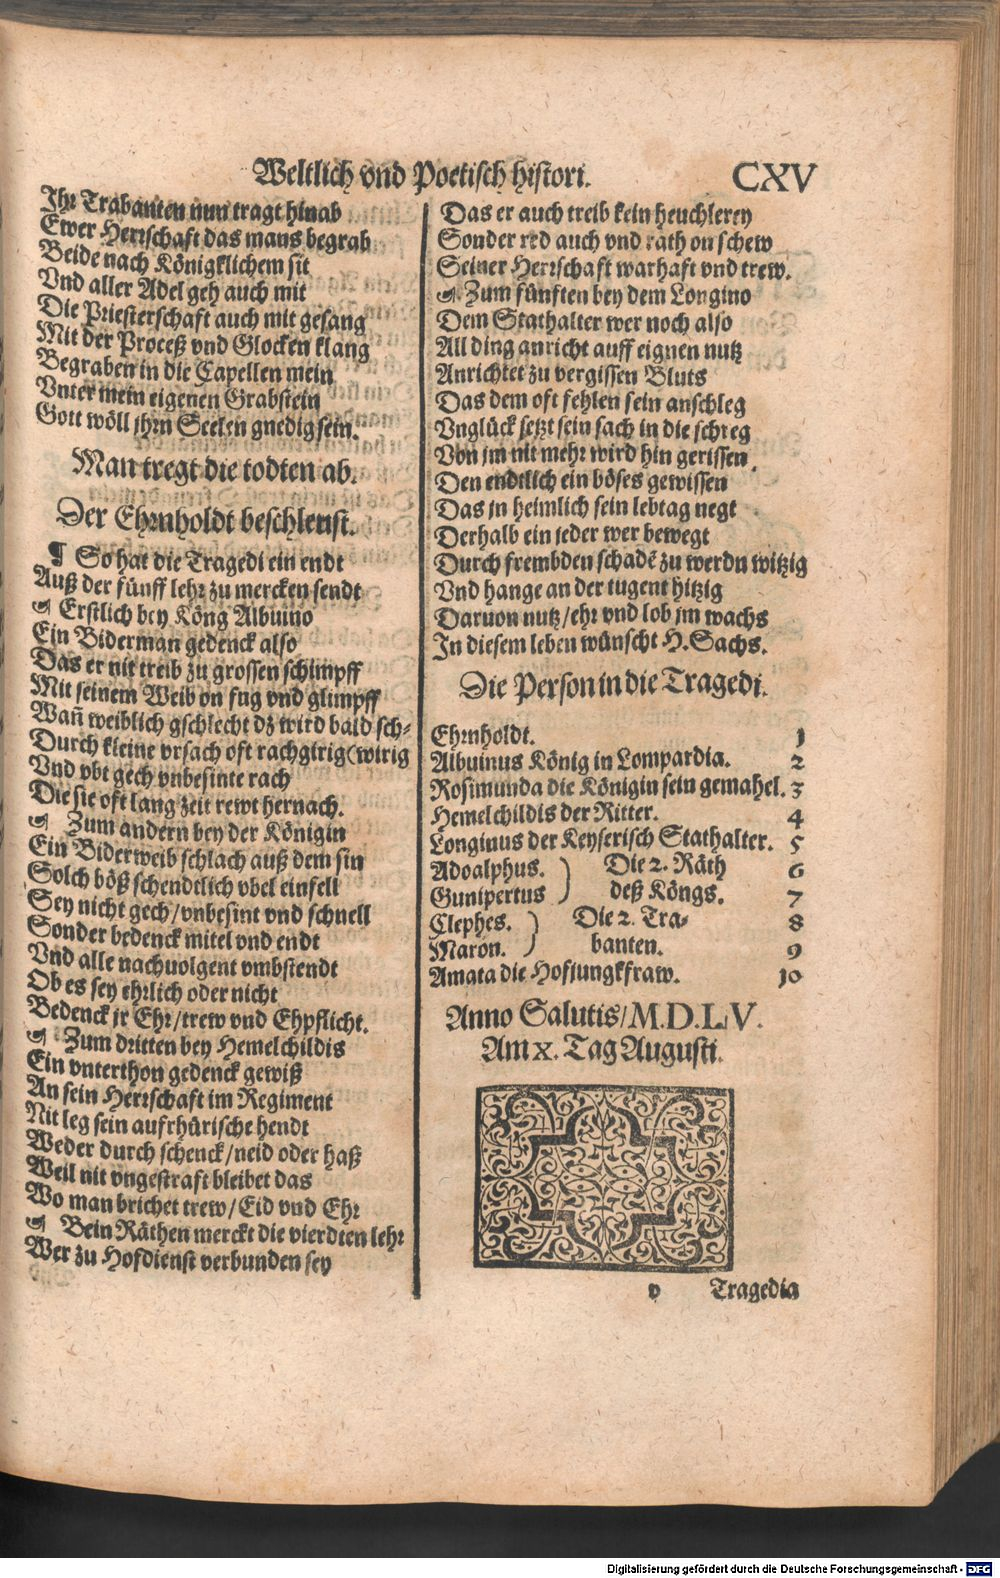 Weltlich vnd Poetisch histori. CXV
Ihr Trabanten nun tragt hinab
Ewer Herrschaft das mans begrab
Beide nach Königklichem sit
Vnd aller Adel geh auch mit
Die Priesterschaft auch mit gesang
Mit der Proceß vnd Glocken klang
Begraben in die Capellen mein
Vnter mein eigenen Grabstein
Gott wöll jhrn Seelen gnedig sein.
Man tregt die todten ab.
Der Ehrnholdt beschleust.
¶ So hat die Tragedi ein endt
Auß der fünff lehr zu mercken sendt
☙ Erstlich bey Köng Albuino
Ein Biderman gedenck also
Das er nit treib zu grossen schimpff
Mit seinem Weib on fug vnd glimpff
Wañ weiblich gschlecht dz wird bald sch-
Durch kleine vrsach oft rachgirig (wirig
Vnd vbt gech vnbesinte rach
Die sie oft lang zeit rewt hernach.
☙ Zum andern bey der Königin
Ein Biderweib schlach auß dem sin
Solch böß schendtlich vbel einfell
Sey nicht gech/vnbesint vnd schnell
Sonder bedenck mitel vnd endt
Vnd alle nachuolgent vmbstendt
Ob es sey ehrlich oder nicht
Bedenck jr Ehr/trew vnd Ehpflicht.
☙ Zum dritten bey Hemelchildis
Ein vnterthon gedenck gewiß
An sein Herrschaft im Regiment
Nit leg sein aufrhürische hendt
Weder durch schenck/neid oder haß
Weil nit vngestraft bleibet das
Wo man brichet trew/Eid vnd Ehr
☙ Bein Räthen merckt die vierdten lehr
Wer zu Hofdienst verbunden sey
Das er auch treib kein heuchlerey
Sonder red auch vnd rath on schew
Seiner Herrschaft warhaft vnd trew.
☙ Zum fünften bey dem Longino
Dem Stathalter wer noch also
All ding anricht auff eignen nutz
Anrichtet zu vergissen Bluts
Das dem oft fehlen sein anschleg
Vnglück setzt sein sach in die schreg
Von jm nit mehr wird hin gerissen
Den endtlich ein böses gewissen
Das jn heimlich sein lebtag negt
Derhalb ein jeder wer bewegt
Durch frembden schadẽ zu werdn witzig
Vnd hange an der tugent hitzig
Daruon nutz/ehr vnd lob jm wachs
In diesem leben wünscht H. Sachs.
Die Person in die Tragedi.
Ehrnholdt. 1
Albuinus König in Lompardia. 2
Rosimunda die Königin sein gemahel. 3
Hemelchildis der Ritter. 4
Longinus der Keyserisch Stathalter. 5
Adoalphus. ) Die 2. Räth 6
Gunipertus ) deß Köngs. 7
Clephes. ) Die 2. Tra- 8
Maron. ) banten. 9
Amata die Hofiungkfraw. 10
Anno Salutis/M.D.LV.
Am x. Tag Augusti.
v Tragedia
Digitalisierung gefördert durch die Deutsche Forschungsgemeinschaft - DFG